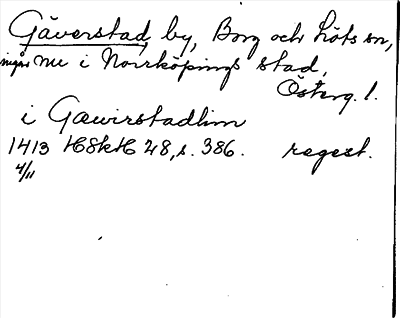 Gäverstad, by, Borg och Löts sn,
ingår nu i Norrköpings stad,
Österg. l.
i Gæwirstadhum
1413 HSkH 28, s. 386. regest.
4/11